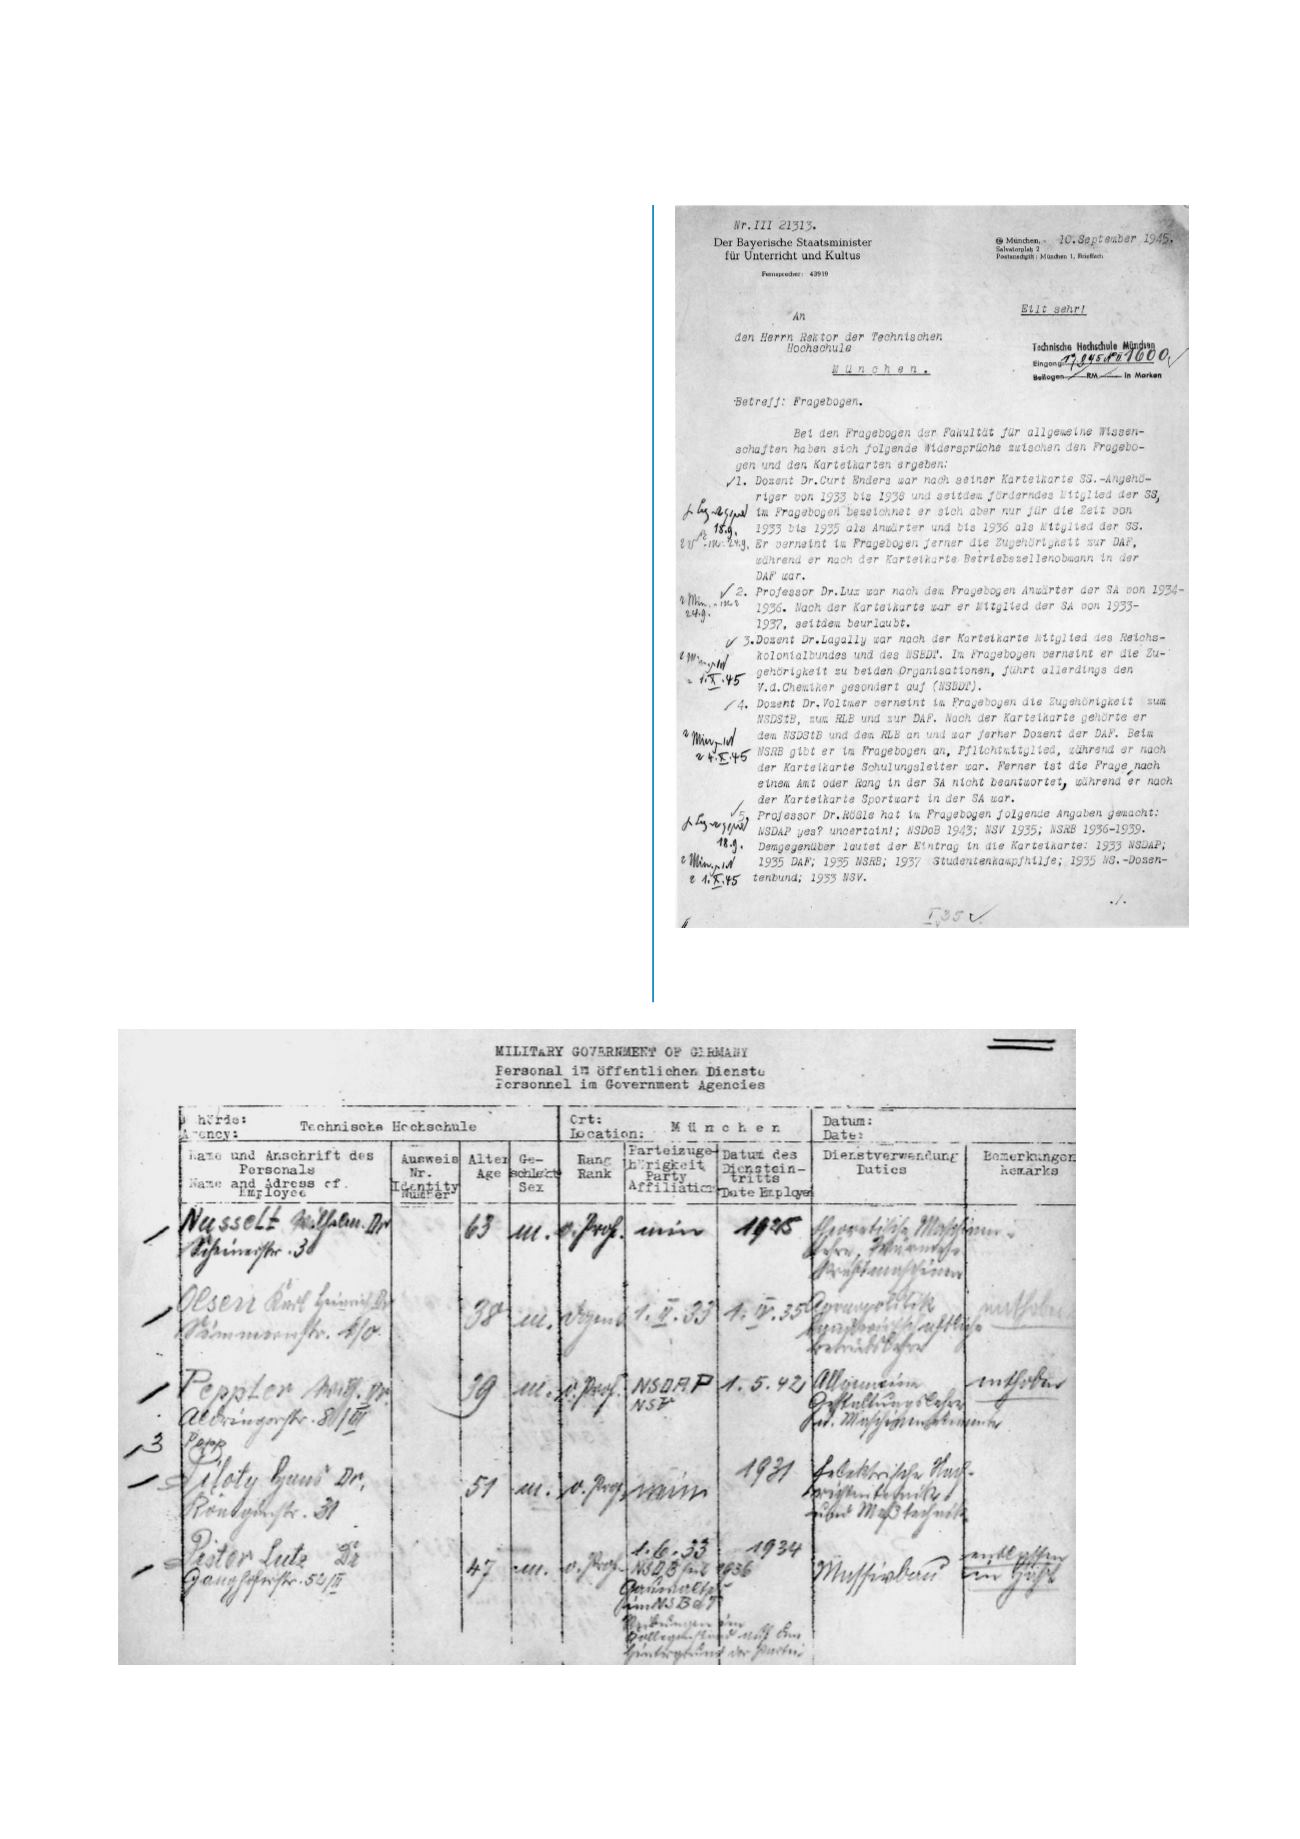 Nr.III 21313.
Der Bayerische Staatsminister
für Unterricht und Kultus
Fernsprecher: 43919
München, 10.September 1945.
Salvatorplatz 2
Postanschrift: München 1, Brieffach
Eilt sehr!
An
den Herrn Rektor der Technischen
Hochschule
München.
Technische Hochschule München
Eingang: 1600
Beilagen RM in Marken
Betreff: Fragebogen.
Bei den Fragebogen der Fakultät für allgemeine Wissen-
schaften haben sich folgende Widersprüche zwischen den Fragebo-
gen und den Karteikarten ergeben:
1. Dozent Dr.Curt Enders war nach seiner Karteikarte SS.-Angehö-
riger von 1933 bis 1938 und seitdem förderndes Mitglied der SS,
im Fragebogen bezeichnet er sich aber nur für die Zeit von
18.9.
1933 bis 1935 als Anwärter und bis 1936 als Mitglied der SS.
24.9. Er verneint im Fragebogen ferner die Zugehörigkeit zur DAF,
während er nach der Karteikarte Betriebszellenobmann in der
DAF war.
2. Professor Dr.Lux war nach dem Fragebogen Anwärter der SA von 1934-
24.9.
1936. Nach der Karteikarte war er Mitglied der SA von 1933-
1937, seitdem beurlaubt.
3.Dozent Dr.Lagally war nach der Karteikarte Mitglied des Reichs-
kolonialbundes und des NSBDT. Im Fragebogen verneint er die Zu-
gehörigkeit zu beiden Organisationen, führt allerdings den
1.X.45
V.d.Chemiker gesondert auf (NSBDT).
4. Dozent Dr.Voltmer verneint im Fragebogen die Zugehörigkeit zum
NSDStB, zum RLB und zur DAF. Nach der Karteikarte gehörte er
dem NSDStB und dem RLB an und war ferher Dozent der DAF. Beim
4.X.45
NSRB gibt er im Fragebogen an, Pflichtmitglied, während er nach
der Karteikarte Schulungsleiter war. Ferner ist die Frage nach
einem Amt oder Rang in der SA nicht beantwortet, während er nach
der Karteikarte Sportwart in der SA war.
5. Professor Dr.Rößle hat im Fragebogen folgende Angaben gemacht:
NSDAP yes? uncertain!; NSDoB 1943; NSV 1935; NSRB 1936-1939.
18.9.
Demgegenüber lautet der Eintrag in die Karteikarte: 1933 NSDAP;
1935 DAF; 1935 NSRB; 1937 Studentenkampfhilfe; 1935 NS.-Dozen-
1.X.45
tenbund; 1933 NSV.
./.
MILITARY GOVERNMENT OF GERMANY
Personal im öffentlichen Dienste
Personnel im Government Agencies
hörde: Technische Hochschule Ort: München Datum:
Agency: Location: Date:
Name und Anschrift des Personals
Name and Adress of. Employee
Ausweis Nr. Identity Number
Alter Age
Ge-schlecht Sex
Rang Rank
Parteizuge-hörigkeit Party Affiliation
Datum des Dienstein-tritts Date Employe
Dienstverwendung Duties
Bemerkungen Remarks
Nusselt Wilhelm. Dr 63 m. o. Prof. nein 1925 theoretische Maschinen-
Scheinerstr. 3 lehre, Wärme
Kraftmaschinen
Olsen Karl Heinrich Dr 38 m. 1.II.33 1.IV.35 Agrarpolitik
betriebslehre
Peppler Wilh. Dr. 39 m. o. Prof. NSDAP 1.5.42 Allgemeine enthoben
Aldringerstr. 8/III NSV Gestaltungslehre
u. Maschinenelemente
3
Piloty Hans Dr. 51 m. o. Prof. nein 1931 Elektrische Nach-
Königinstr. 31 richtentechnik
und Meßtechnik
Pistor Lutz Dr 47 m. o. Prof. 1.6.33 1934 Massivbau
Ganghoferstr. 52/II 1936
im NSBdT
Hintergrund der Partei